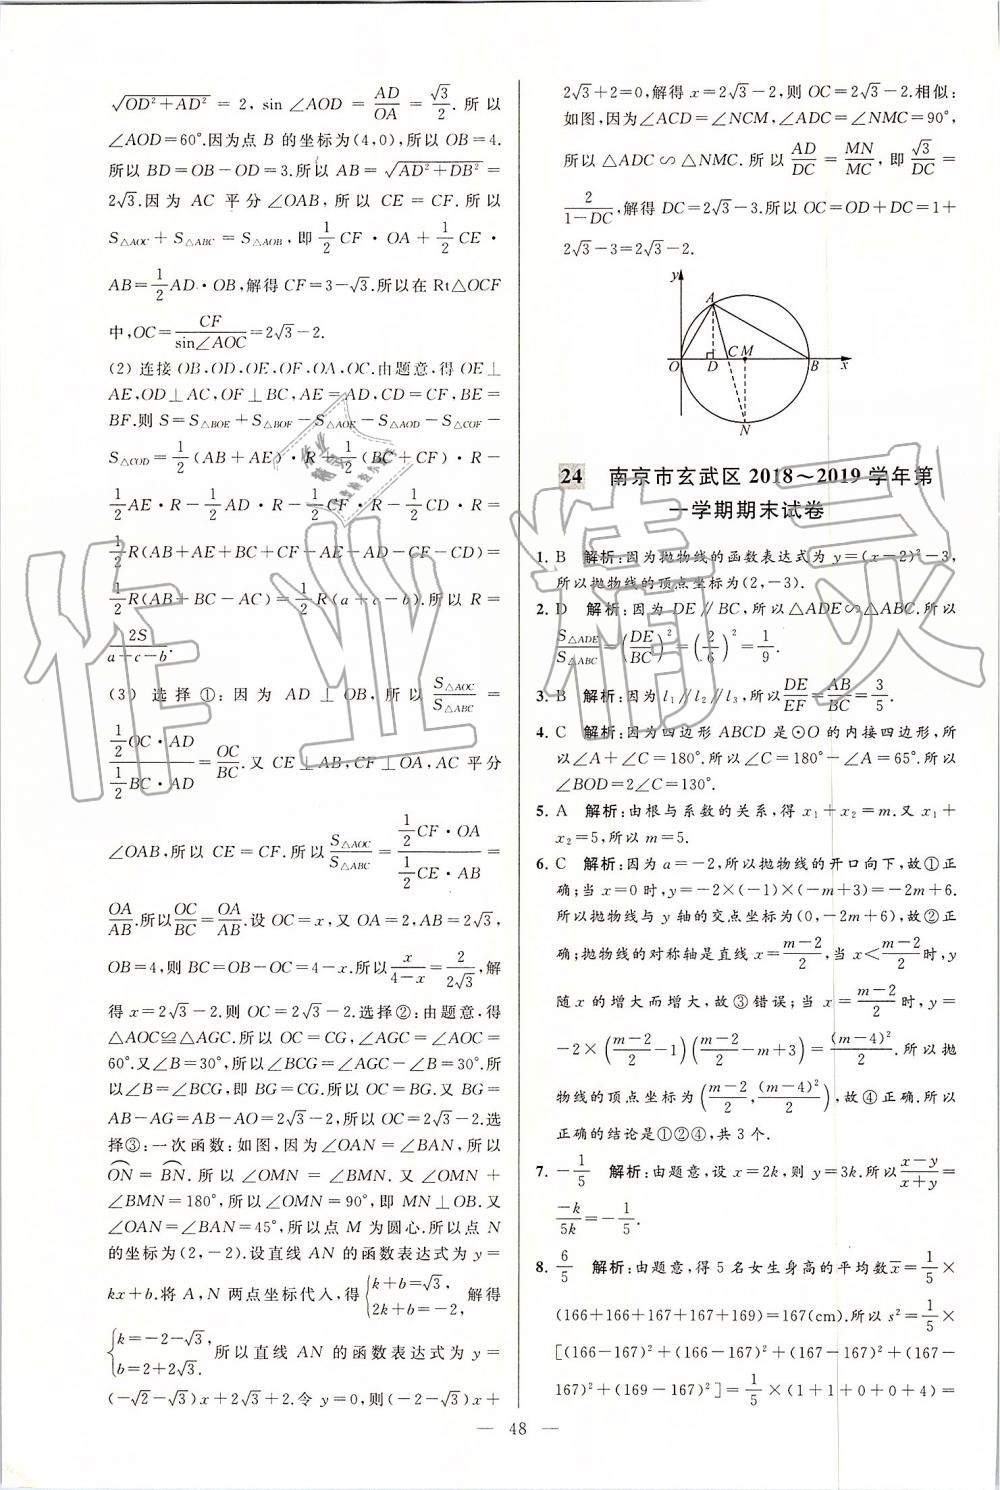 √(OD²+AD²) = 2, sin∠AOD = AD/OA = √3/2. 所以
∠AOD=60°.因为点 B 的坐标为(4,0),所以 OB=4.
所以 BD=OB-OD=3.所以 AB=√(AD²+DB²)=
2√3.因为 AC 平分∠OAB,所以 CE=CF.所以
S△AOC+S△ABC=S△AOB,即 1/2 CF·OA+1/2 CE·
AB=1/2 AD·OB,解得 CF=3-√3.所以在 Rt△OCF
中,OC=CF/sin∠AOC=2√3-2.
(2) 连接 OB、OD、OE、OF、OA、OC.由题意,得 OE⊥
AE,OD⊥AC,OF⊥BC,AE=AD,CD=CF,BE=
BF.则 S=S△BOE+S△BOF-S△AOE-S△AOD-S△COF-
S△COD=1/2(AB+AE)·R+1/2(BC+CF)·R-
1/2 AE·R-1/2 AD·R-1/2 CF·R-1/2 CD·R=
1/2 R(AB+AE+BC+CF-AE-AD-CF-CD)=
1/2 R(AB+BC-AC)=1/2 R(a+c-b).所以 R=
2S/(a+c-b).
(3) 选择①:因为 AD⊥OB,所以 S△AOC/S△ABC=
(1/2 OC·AD)/(1/2 BC·AD)=OC/BC.又 CE⊥AB,CF⊥OA,AC 平分
∠OAB,所以 CE=CF.所以 S△AOC/S△ABC=(1/2 CF·OA)/(1/2 CE·AB)=
OA/AB.所以 OC/BC=OA/AB.设 OC=x,又 OA=2,AB=2√3,
OB=4,则 BC=OB-OC=4-x.所以 x/(4-x)=2/(2√3),解
得 x=2√3-2.则 OC=2√3-2.选择②:由题意.得
△AOC≌△AGC.所以 OC=CG,∠AGC=∠AOC=
60°.又∠B=30°,所以∠BCG=∠AGC-∠B=30°.所
以∠B=∠BCG,即 BG=CG.所以 OC=BG.又 BG=
AB-AG=AB-AO=2√3-2,所以 OC=2√3-2.选
择③:一次函数:如图,因为∠OAN=∠BAN,所以
⌒ON=⌒BN.所以∠OMN=∠BMN.又∠OMN+
∠BMN=180°,所以∠OMN=90°,即 MN⊥OB.又
∠OAN=∠BAN=45°,所以点 M 为圆心.所以点 N
的坐标为(2,-2).设直线 AN 的函数表达式为 y=
kx+b.将 A、N 两点坐标代人,得{k+b=√3, 2k+b=-2, 解得
{k=-2-√3, b=2+2√3. 所以直线 AN 的函数表达式为 y=
(-√2-√3)x+2√3+2.令 y=0,则(-2-√3)x+
2√3+2=0,解得 x=2√3-2,则 OC=2√3-2.相似:
如图,因为∠ACD=∠NCM,∠ADC=∠NMC=90°,
所以△ADC∽△NMC.所以 AD/DC=MN/MC,即 √3/DC=
2/(1-DC),解得 DC=2√3-3.所以 OC=OD+DC=1+
2√3-3=2√3-2.
y
A
O D C M B x
N
24 南京市玄武区 2018～2019 学年第
一学期期末试卷
1. B 解析:因为抛物线的函数表达式为 y=(x-2)²-3,
所以抛物线的顶点坐标为(2,-3).
2. D 解析:因为 DE∥BC,所以△ADE∽△ABC.所以
S△ADE/S△ABC=(DE/BC)²=(2/6)²=1/9.
3. B 解析:因为 l₁∥l₂∥l₃,所以 DE/EF=AB/BC=3/5.
4. C 解析:因为四边形 ABCD 是⊙O 的内接四边形,所
以∠A+∠C=180°.所以∠C=180°-∠A=65°.所以
∠BOD=2∠C=130°.
5. A 解析:由根与系数的关系,得 x₁+x₂=m.又 x₁+
x₂=5,所以 m=5.
6. C 解析:因为 a=-2,所以抛物线的开口向下,故①正
确;当 x=0 时,y=-2×(-1)×(-m+3)=-2m+6.
所以抛物线与 y 轴的交点坐标为(0,-2m+6),故②正
确;抛物线的对称轴是直线 x=(m-2)/2,当 x<(m-2)/2 时,y
随 x 的增大而增大,故③错误;当 x=(m-2)/2 时,y=
-2×((m-2)/2-1)((m-2)/2-m+3)=(m-4)²/2.所以抛
物线的顶点坐标为((m-2)/2,(m-4)²/2),故④正确.所以
正确的结论是①②④,共 3 个.
7. -1/5 解析:由题意,设 x=2k,则 y=3k.所以 (x-y)/(x+y)=
-k/5k=-1/5.
8. 6/5 解析:由题意,得 5 名女生身高的平均数 x̄=1/5×
(166+166+167+167+169)=167(cm).所以 s²=1/5×
[(166-167)²+(166-167)²+(167-167)²+(167-
167)²+(169-167)²]=1/5×(1+1+0+0+4)=
— 48 —
作业精灵